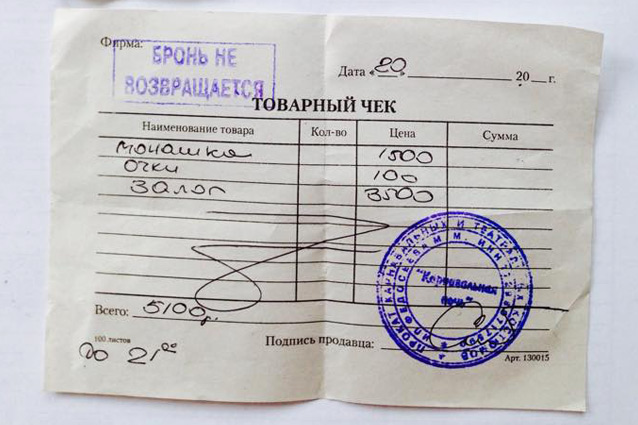 Фирма:
БРОНЬ НЕ
ВОЗВРАЩАЕТСЯ
Дата «20» 20 г.
ТОВАРНЫЙ ЧЕК
Наименование товара Кол-во Цена Сумма
монашка 1500
очки 100
залог 3500
Всего: 5100р.
ПРОКАТ КАРНАВАЛЬНЫХ И ТЕАТРАЛЬНЫХ КОСТЮМОВ
"Карнавальная
ночь"
100 листов
Подпись продавца:
До 21 00
Арт. 130015